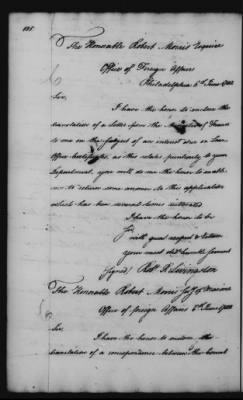 The Honorable Robert Morris Esquire
Office of Foreign Affairs
Philadelphia 5th June 1782
Sir,
I have the honor to enclose the
translation of a Letter from the of France
to me on the subject of an interest due on Loan
Office Certificates, as this relates particularly to your
Department, you will do me the honor to enable
me to return some answer to this application
which has been several times
I have the honor to be
Sir
with great respect & Esteem
your most obdt humble Servant
(signed) Robt R Livingston
The Honorable Robert Morris
Office of foreign Affairs 6th June 1782
Sir
I have the honor to enclose the
translation of a correspondence between the Count